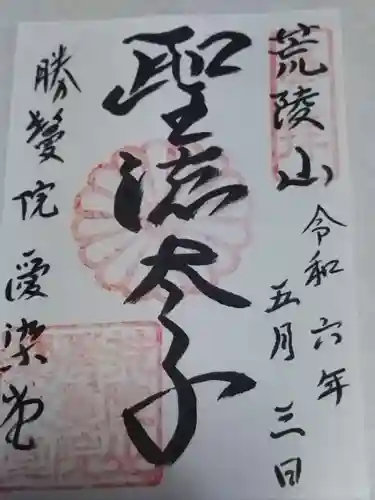 荒陵山
令和六年
五月三日
聖徳太子
勝鬘院愛染堂